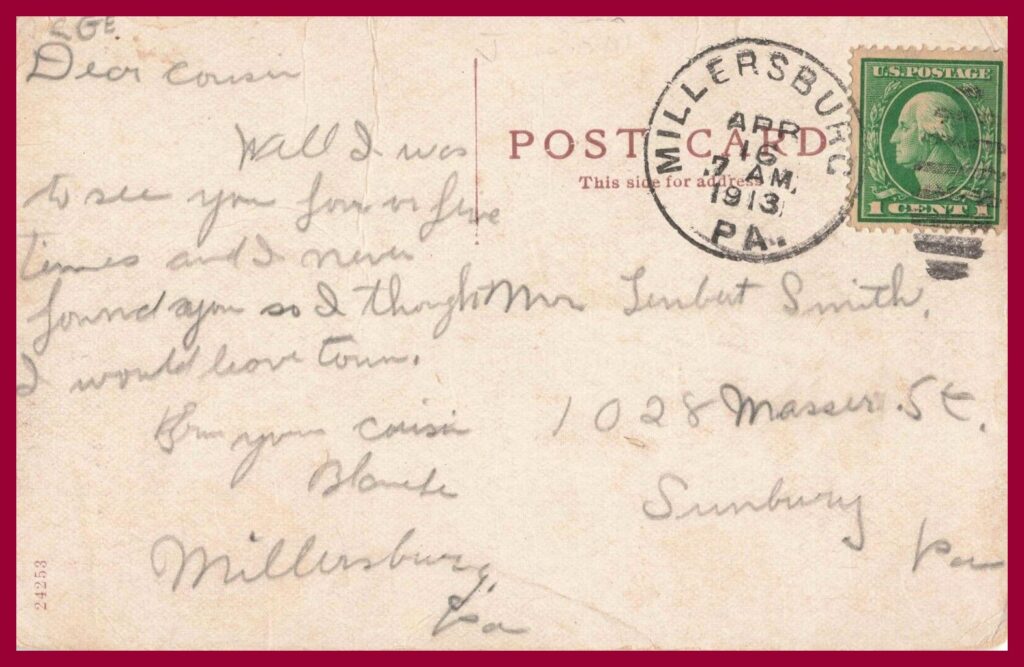 CGE
Dear cousin
Well I was
to see you four or five
times and I never
found you so I thought
I would leave town.
From your cousin
Blanche
Millersburg,
Pa
24253
POST CARD
This side for address
MILLERSBURG
APR
16
7 AM.
1913
PA.
U.S. POSTAGE
1 CENT 1
Mr Smith,
1028 Masser St.
Sunbury
Pa